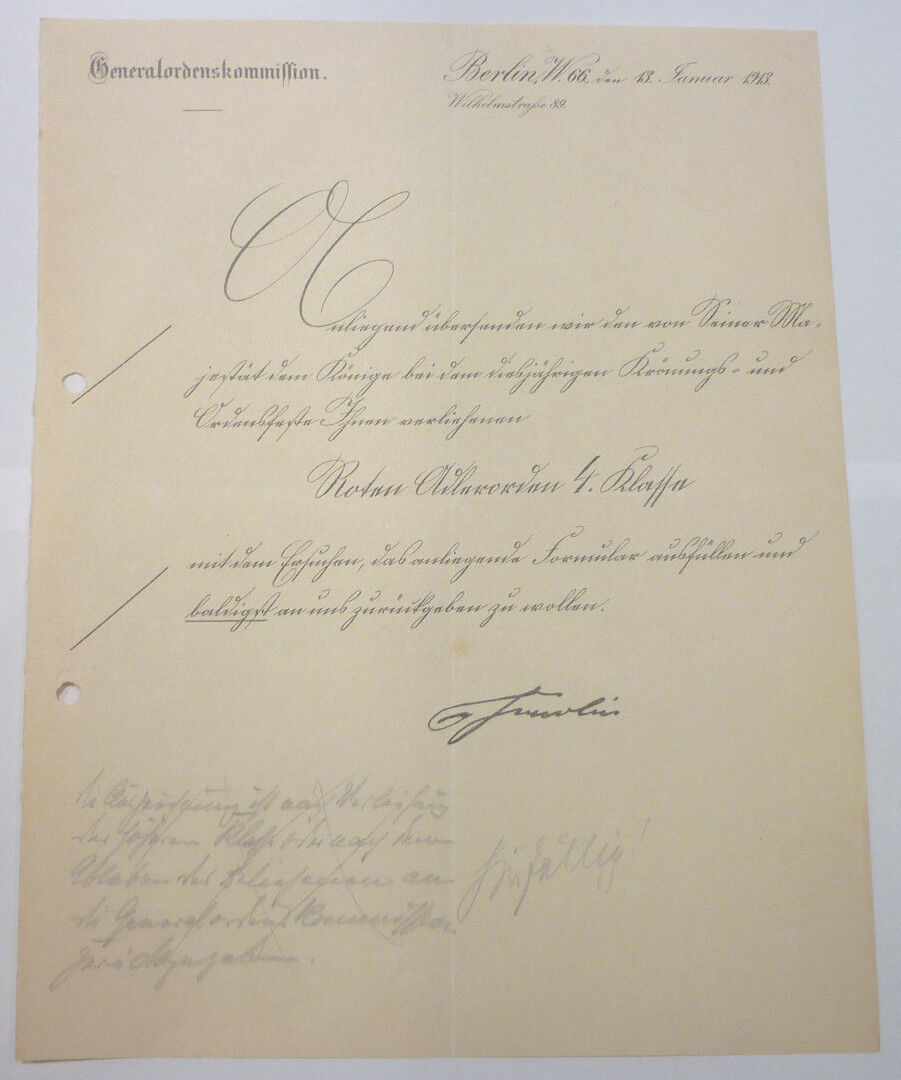 Generalordenskommission.
Berlin, W. 66, den 13. Januar 1913.
Wilhelmstraße 89.
Anliegend übersenden wir den von Seiner Ma-
jestät dem Könige bei dem diesjährigen Krönungs- und
Ordensfeste Ihnen verliehenen
Roten Adlerorden 4. Klasse
mit dem Ersuchen, das anliegende Formular ausfüllen und
baldigst an uns zurückgeben zu wollen.
die Auszeichnung ist nach Verleihung
der höheren Klasse oder nach dem
Ableben des Beliehenen an
die Generalordens Kommission
zurückzugeben.